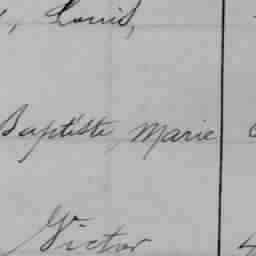 , Louis,
Baptiste, Marie
Victor